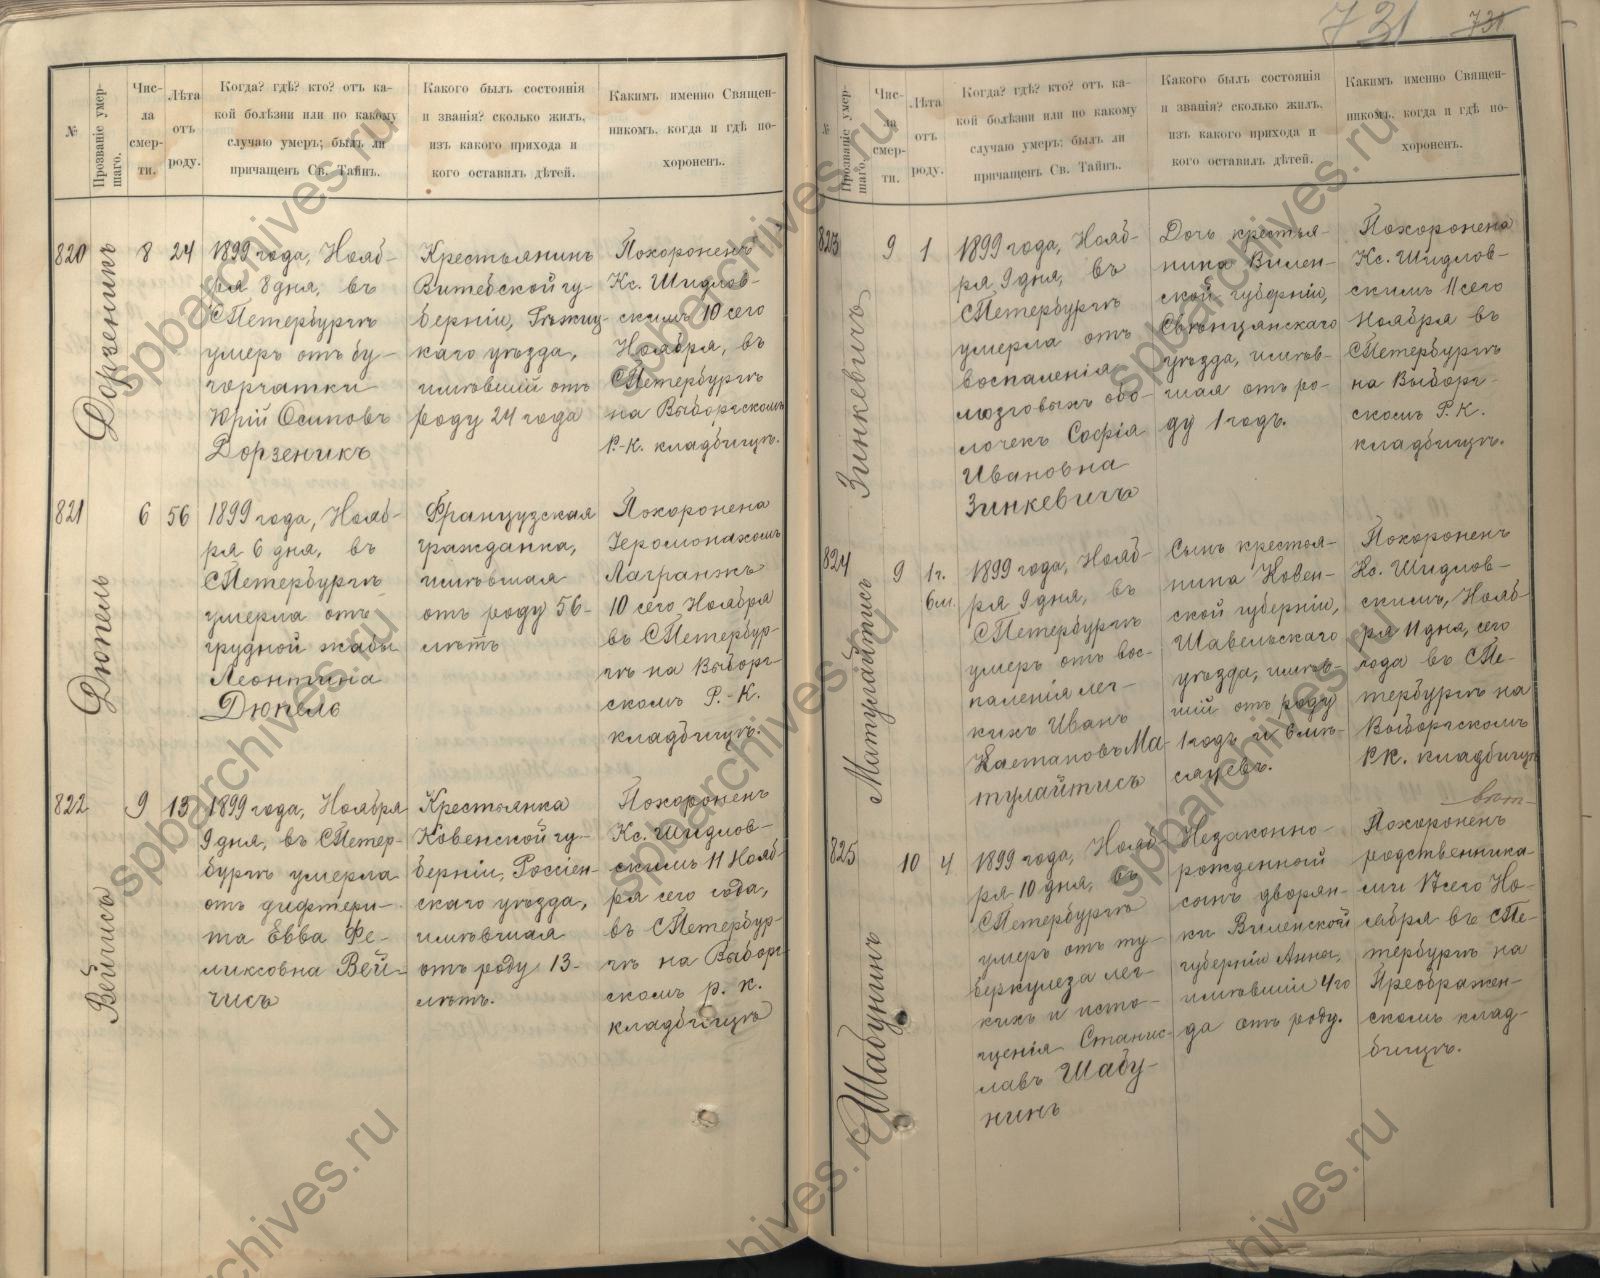 731 731
№
Прозваніе умер-
шаго.
Чис-
ла
смер-
ти.
Лѣта
отъ
роду.
Когда? гдѣ? кто? отъ ка-
кой болѣзни или по какому
случаю умеръ; былъ ли
причащенъ Св. Тайнъ.
Какого былъ состоянія
и званія? сколько жилъ,
изъ какого прихода и
кого оставилъ дѣтей.
Какимъ именно Священ-
никомъ, когда и гдѣ по-
хороненъ.
820
Дорзеникъ
8
24
1899 года, Нояб-
ря 8 дня, въ
СПетербургѣ
умеръ отъ бу-
горчатки
Юрій Осиповъ
Дорзеникъ
Крестьянинъ
Витебской гу-
берніи, Рѣжиц-
каго уѣзда,
имѣвшій отъ
роду 24 года
Похороненъ
Кс. Шидлов-
скимъ 10 сего
Ноября, въ
СПетербургѣ
на Выборгскомъ
Р.-К. кладбищѣ.
821
Дюпель
6
56
1899 года, Нояб-
ря 6 дня, въ
СПетербургѣ
умерла отъ
грудной жабы
Леонтина
Дюпель
Французская
гражданка,
имѣвшая
отъ роду 56-
лѣтъ
Похоронена
Іеромонахомъ
Лагранжъ
10 сего Ноября
въ СПетербур-
гѣ на Выборг-
скомъ Р.-К.
кладбищѣ.
822
Вейчисъ
9
13
1899 года, Ноября
9 дня, въ СПетер-
бургѣ умерла
отъ дифтери-
та Евва Фе-
ликсовна Вей-
чисъ
Крестьянка
Ковенской гу-
берніи, Россіен-
скаго уѣзда,
имѣвшая
отъ роду 13-
лѣтъ.
Похороненъ
Кс. Шидлов-
скимъ 11 Нояб-
ря сего года,
въ СПетербур-
гѣ на Выборг-
скомъ р. к.
кладбищѣ
№
Прозваніе умер-
шаго.
Чис-
ла
смер-
ти.
Лѣта
отъ
роду.
Когда? гдѣ? кто? отъ ка-
кой болѣзни или по какому
случаю умеръ; былъ ли
причащенъ Св. Тайнъ.
Какого былъ состоянія
и званія? сколько жилъ,
изъ какого прихода и
кого оставилъ дѣтей.
Какимъ именно Священ-
никомъ, когда и гдѣ по-
хороненъ.
823
Зинкевичъ
9
1
1899 года, Нояб-
ря 9 дня, въ
СПетербургѣ
умерла отъ
воспаленія
мозговыхъ обо-
лочекъ Софія
Ивановна
Зинкевичъ
Дочь крестья-
нина Вилен-
ской губерніи,
Свѣнцянскаго
уѣзда, имѣв-
шая отъ ро-
ду 1 годъ.
Похоронена
Кс. Шидлов-
скимъ 11 сего
Ноября въ
СПетербургѣ
на Выборг-
скомъ Р. К.
кладбищѣ.
824
Матулайтисъ
9
1г.
6м.
1899 года, Нояб-
ря 9 дня, въ
СПетербургѣ
умеръ отъ вос-
паленія лег-
кихъ Иванъ
Каетановъ Ма-
тулайтисъ
Сынъ крестья-
нина Ковен-
ской губерніи,
Шавельскаго
уѣзда, имѣв-
шій отъ роду
1 годъ и 6 мѣ-
сяцевъ.
Похороненъ
Кс. Шидлов-
скимъ, Нояб-
ря 11 дня, сего
года въ СПе-
тербургѣ на
Выборгскомъ
Р.К. кладбищѣ
825
Шабунинъ
10
4
1899 года, Нояб-
ря 10 дня, въ
СПетербургѣ
умеръ отъ ту-
беркулеза лег-
кихъ и исто-
щенія Станис-
лавъ Шабу-
нинъ
Незаконно-
рожденный
сынъ дворян-
ки Виленской
губерніи Анны,
имѣвшій 4 го
да отъ роду.
Похороненъ
родственника-
ми 12 сего Но-
ября въ СПе-
тербургѣ на
Преображен-
скомъ клад-
бищѣ.
spbarchives.ru
spbarchives.ru
spbarchives.ru
spbarchives.ru
spbarchives.ru
spbarchives.ru
chives.ru
spbarchives.ru
chives.ru